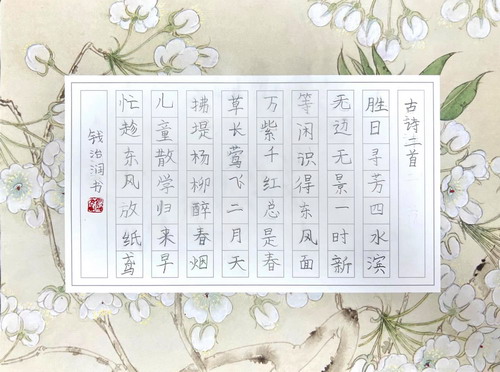 古诗二首
胜日寻芳四水滨
无边无景一时新
等闲识得东风面
万紫千红总是春
草长莺飞二月天
拂堤杨柳醉春烟
儿童散学归来早
忙趁东风放纸鸢
钱治润书